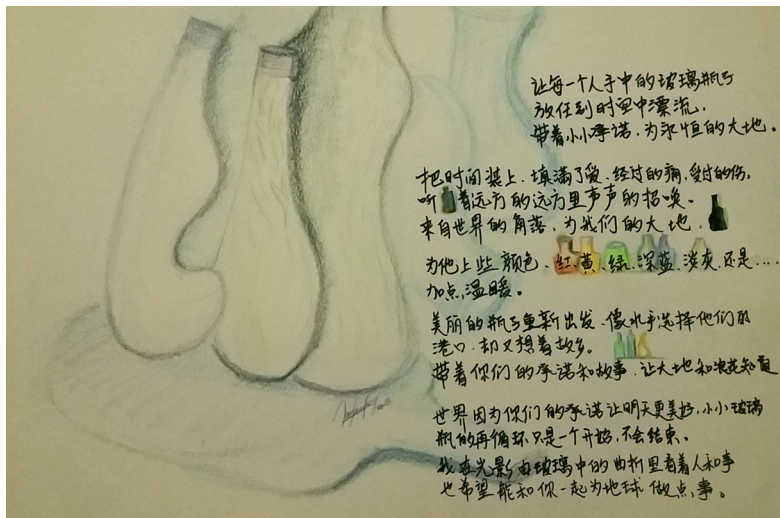 让每一个人手中的玻璃瓶子
放在到时里中漂流,
带着小小承诺,为永恒的大地。
把时间装上、填满了爱、经过的痛,受过的伤,
听着远方的远方里声声的招唤。
来自世界的角落,为我们的大地.
为他上些颜色、红、黄、绿、深蓝、淡灰、还是....
加点,温暖。
美丽的瓶子重新出发、像水手选择他们的
港口、却又想着故乡。
带着你们的承诺和故事、让大地和浪花知道
世界因为你们的承诺让明天更美好,小小玻璃
瓶的再循环只是一个开始,不会结束。
我在光影由玻璃中的曲折里看着人和事
也希望能和你一起为地球做点,事。